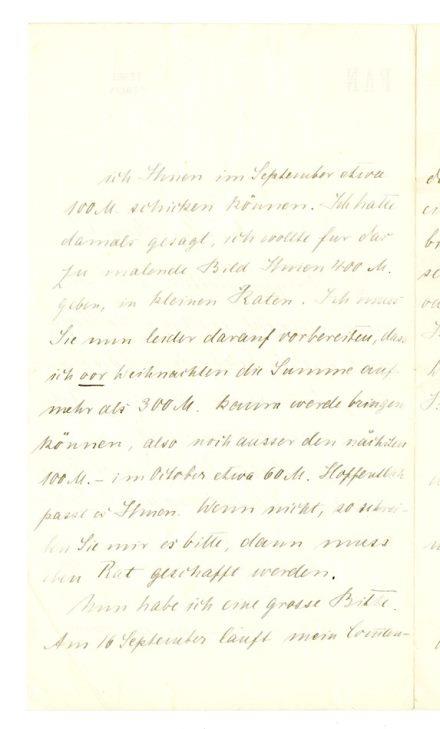 ich Ihnen im September etwa
100 M. schicken können. Ich hatte
damals gesagt, ich wollte für das
zu malende Bild Ihnen 400 M.
geben, in kleinen Raten. Ich muss
Sie nun leider darauf vorbereiten, dass
ich vor Weihnachten die Summe auf
mehr als 300 M. kaum werde bringen
können, also noch ausser den nächsten
100 M. – im October etwa 60 M. Hoffentlich
passt es Ihnen. Wenn nicht, so schrei-
ben Sie mir es bitte, dann muss
eben Rat geschafft werden.
Nun habe ich eine grosse Bitte.
Am 16 September läuft mein